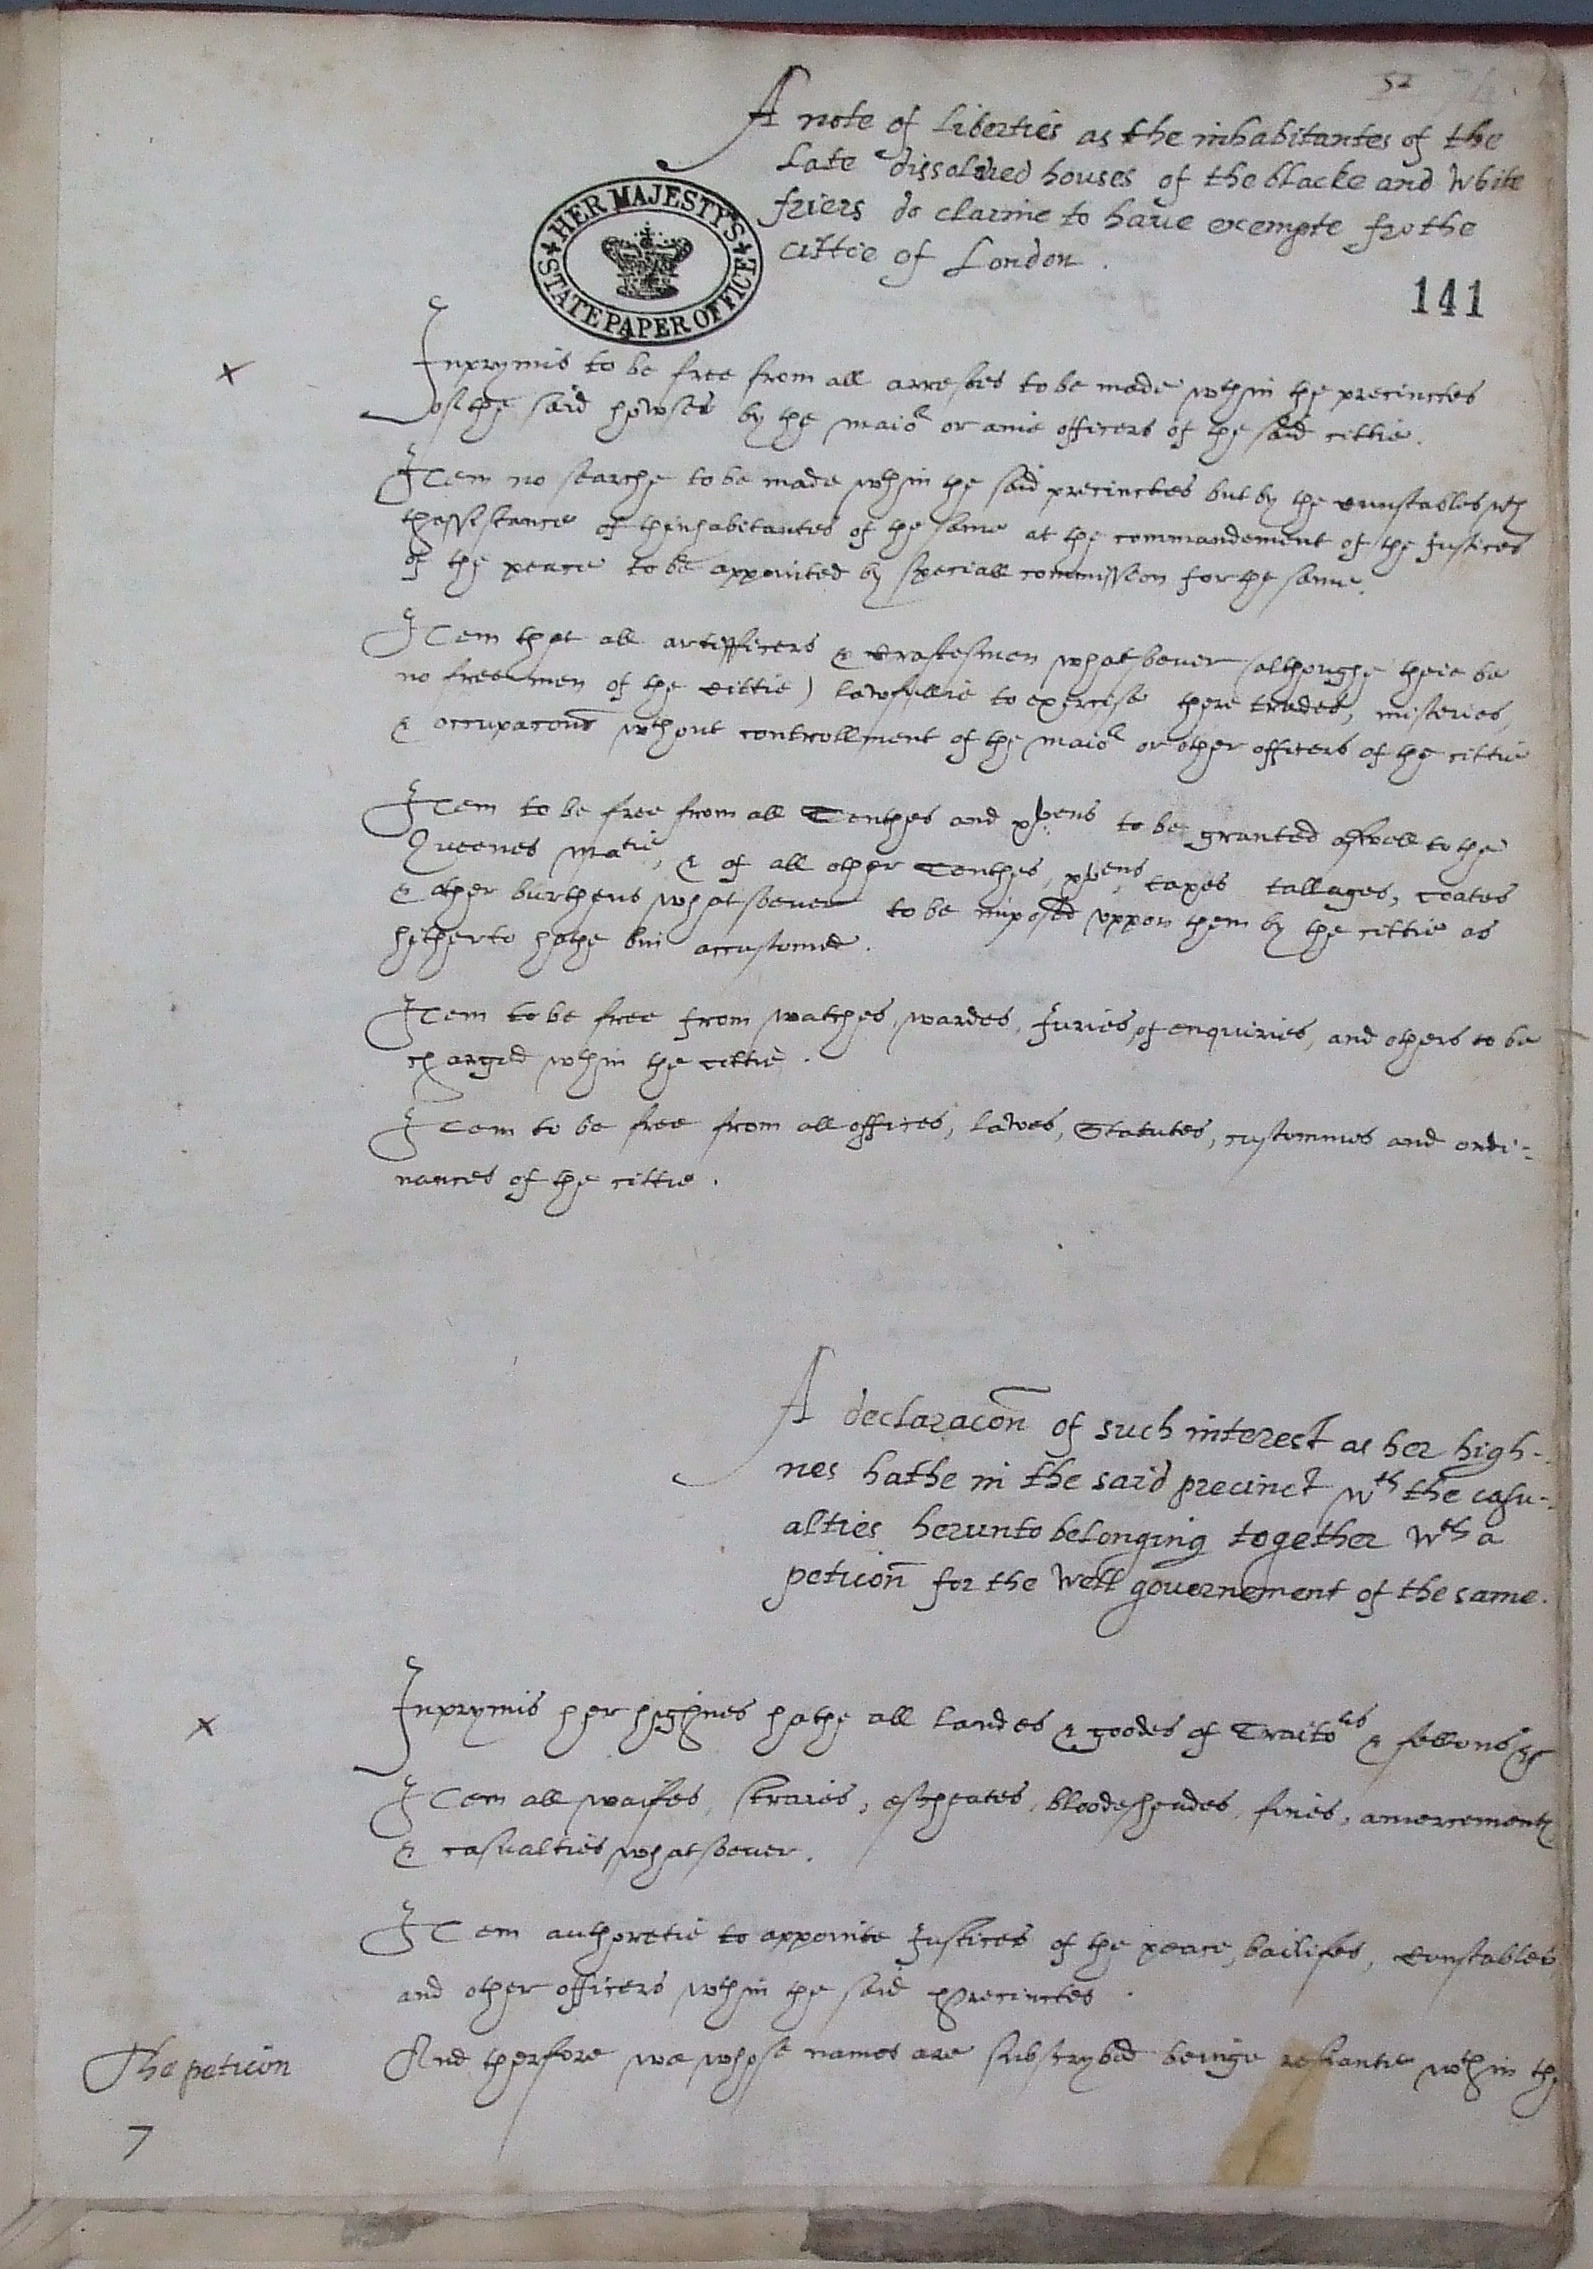 52
A note of liberties as the inhabitantes of the
late dissolued houses of the blacke and white
friers do clarme to haue exempte fro the
cittie of London.
HER MAJESTY'S
STATE PAPER OFFICE
141
x
Inprymis to be free from all arrestes to be made wthin the precinctes
of the said howses by the maior or anie officers of the said cittie.
Item no searche to be made wthin the said precinctes but by the cunstables wth
thassistance of thinhabitantes of the same at the commandement of the Justices
of the peace to be appointed by speciall commission for the same.
Item that all artifficers & craftesmen whatsoeuer (althoughe theie be
no freemen of the cittie) lawfullie to exercise there trades, misteries,
& occupacons wthout controllment of the maior or other officers of the cittie
Item to be free from all Tenthes and xvens to be granted aswell to the
Queenes matie, & of all other Tenthes, xvens, taxes tallages, coates
& other burthens whatsoeuer to be imposed vppon them by the cittie as
hitherto hathe bin accustomed.
Item to be free from watches, wardes, Juries, of enquiries, and others to be
charged wthin the cittie.
Item to be free from all offices, lawes, Statutes, custommes and ordi=
nances of the cittie.
A declaracon of such interest as her high-
nes hathe in the said precinct wth the casu-
alties herunto belonging together wth a
peticion for the well gouernement of the same.
x
Inprymis her highnes hathe all landes & goodes of Traitors & fellons &c
Item all waifes, straies, escheates, bloodsheudes, fines, amercements
& casualties whatsoeuer.
Item authoretie to appointe Justices of the peace, bailifes, cunstables,
and other officers wthin the said precinctes.
The peticion
And therfore we whose names are subscrybed beinge resiantie wthin the
7